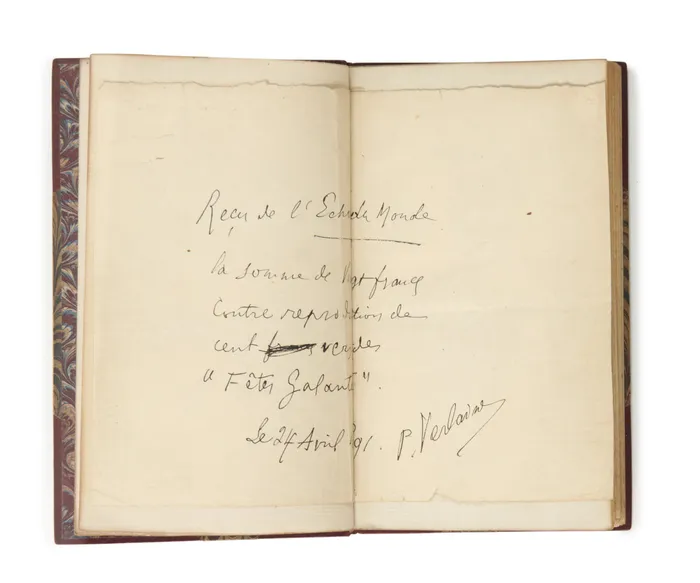 Reçu de l'Echo du Monde
la somme de vingt francs
Contre reproduction de
cent vers des
"Fêtes Galantes".
Le 24 Avril 91. P. Verlaine